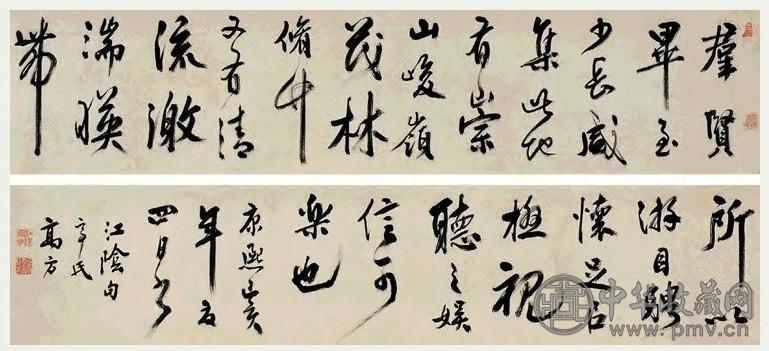 羣賢
畢至
少長咸
集此地
有崇
山峻嶺
茂林
脩竹
又有清
流激
湍暎
帶
所以
游目騁
懷足以
極視
聽之娛
信可
樂也
康熙亥
年
四月
江陰
氏
高方
中华收藏网
www.pmv.cn